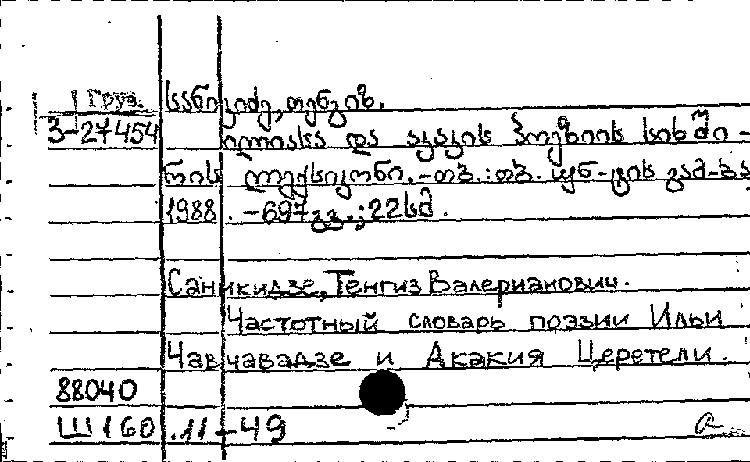 Груз. სანიკიძე, თენგიზ.
3-27454 ილიასა და აკაკის პოეზიის სიხში-
რის ლექსიკონი.-თბ.:თბ. უნ-ტის გამ-ბა
1988.-697გვ.;22სმ.
Саникидзе, Тенгиз Валерианович.
Частотный словарь поэзии Ильи
Чавчавадзе и Акакия Церетели.
88040
Ш160.11-49